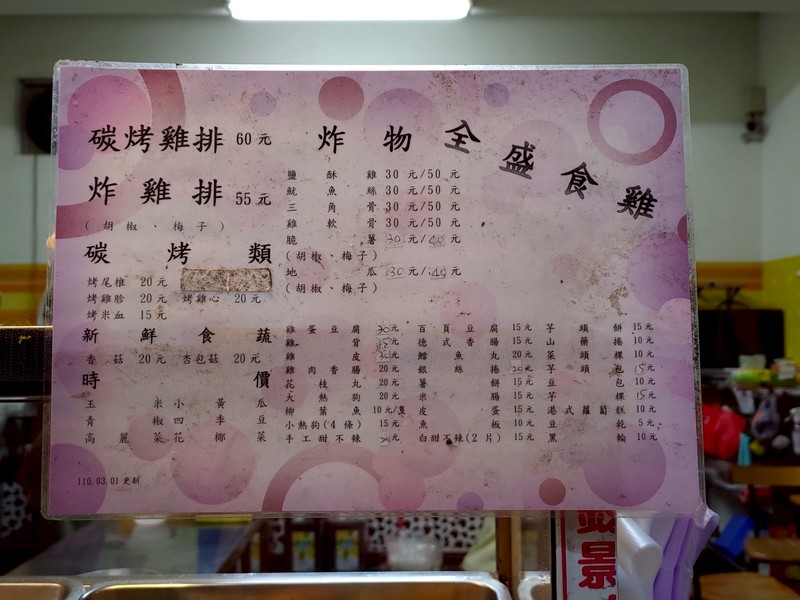 碳烤雞排 60元
炸雞排 55元
(胡椒、梅子)
碳烤類
烤尾椎 20元
烤雞胗 20元 烤雞心 20元
烤米血 15元
新鮮食蔬
香菇 20元 杏包菇 20元
時價
玉米 小黃瓜
青椒 四季豆
高麗菜 花椰菜
110.03.01更新
炸物
全盛食雞
鹽酥雞 30元/50元
魷魚絲 30元/50元
三角骨 30元/50元
雞軟骨 30元/50元
脆薯 30元/40元
(胡椒、梅子)
地瓜 30元/40元
(胡椒、梅子)
雞蛋豆腐 30元
雞胸
雞皮
雞肉香腸 20元
花枝丸 20元
大熱狗 20元
柳葉魚 10元/隻
小熱狗(4條) 15元
手工甜不辣
百頁豆腐 15元
德式香腸 15元
鱈魚丸 20元
銀絲捲
薯餅 15元
米腸 15元
皮蛋 10元
魚板 10元
白甜不辣(2片) 15元
芋頭餅 15元
山藥捲 10元
菜頭粿 10元
芋頭包 15元
豆包 10元
芋粿 15元
港式蘿蔔糕 10元
豆乾 5元
黑輪 10元
景